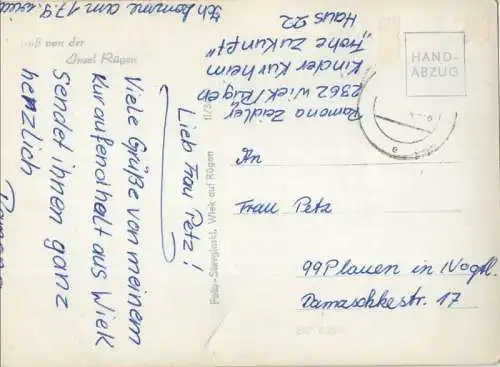 Gruß von der
Insel Rügen
Lieb Frau Petz!
Viele Grüße von meinem
Kuraußendhalt aus Wiek
Sendet ihnen ganz
herzlich
Ramona
Ich komme am 17.9. wied
Ramona Zeidler
2362 Wiek/Rügen
Kinder Kurheim
"Frohe Zukunft"
Haus 22
Foto-Sawginski, Wiek auf Rügen
HAND-
ABZUG
An
Frau Petz
99 Plauen in Vogtl.
Damaschkestr. 17